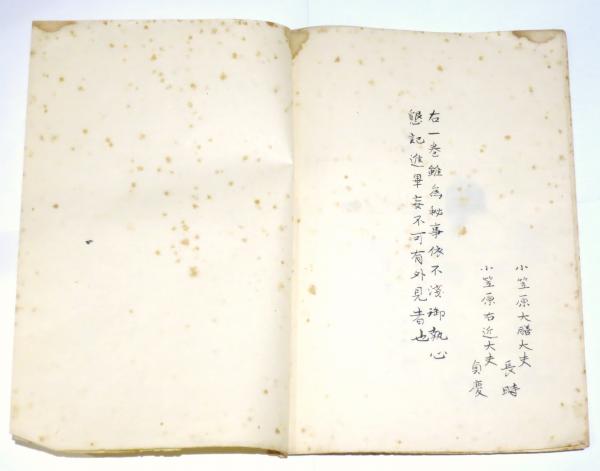 小笠原大膳大夫
長時
小笠原右近大夫
貞慶
右一巻雖為秘事依不淺御執心
懇記進畢妄不可有外見者也